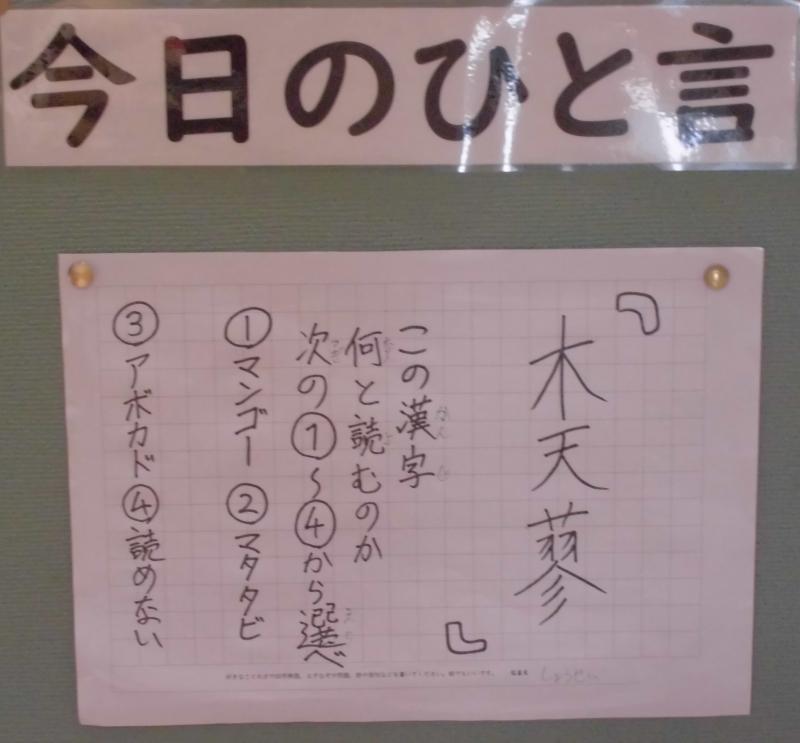 今日のひと言
『木天蓼』
この漢字
何と読むのか
次の①～④から選べ
①マンゴー ②マタタビ
③アボカド ④読めない